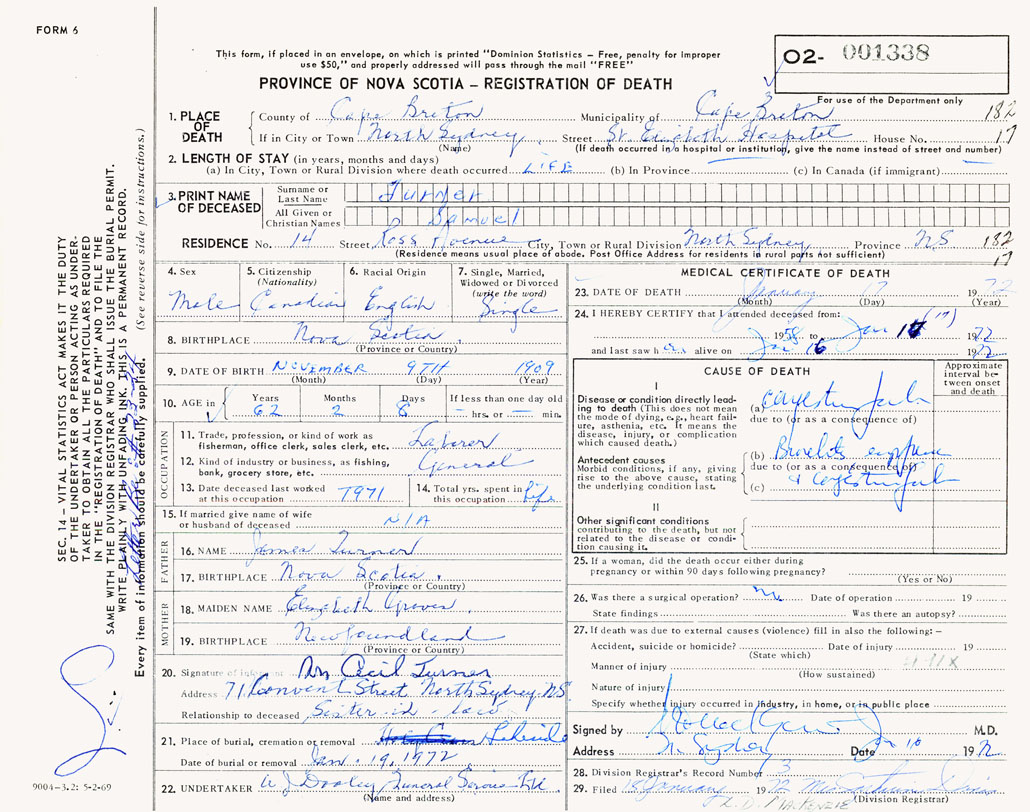 FORM 6
This form, if placed in an envelope, on which is printed "Dominion Statistics – Free, penalty for improper
use $50," and properly addressed will pass through the mail "FREE"
O2- 001338
For use of the Department only
PROVINCE OF NOVA SCOTIA – REGISTRATION OF DEATH
1. PLACE OF DEATH
County of Cape Breton Municipality of Cape Breton 182
If in City or Town North Sydney Street St. Elizabeth Hospital House No. 17
(Name) (If death occurred in a hospital or institution, give the name instead of street and number)
2. LENGTH OF STAY (in years, months and days)
(a) In City, Town or Rural Division where death occurred LIFE (b) In Province (c) In Canada (if immigrant)
3. PRINT NAME OF DECEASED
Surname or Last Name Turner
All Given or Christian Names Samuel
RESIDENCE No. 14 Street Ross Avenue City, Town or Rural Division North Sydney Province NS 182
(Residence means usual place of abode. Post Office Address for residents in rural parts not sufficient) 17
4. Sex Male
5. Citizenship (Nationality) Canadian
6. Racial Origin English
7. Single, Married, Widowed or Divorced (write the word) Single
8. BIRTHPLACE Nova Scotia
(Province or Country)
9. DATE OF BIRTH NOVEMBER 9TH 1909
(Month) (Day) (Year)
10. AGE in Years Months Days If less than one day old
62 2 8 hrs. or min.
OCCUPATION
11. Trade, profession, or kind of work as fisherman, office clerk, sales clerk, etc. Laborer
12. Kind of industry or business, as fishing, bank, grocery store, etc. General
13. Date deceased last worked at this occupation 1971
14. Total yrs. spent in this occupation life
15. If married give name of wife or husband of deceased N/A
FATHER
16. NAME James Turner
17. BIRTHPLACE Nova Scotia.
(Province or Country)
MOTHER
18. MAIDEN NAME Elizabeth Groves
19. BIRTHPLACE Newfoundland
(Province or Country)
20. Signature of Cecil Turner
Address 71 Convent Street North Sydney, NS
Relationship to deceased Sister-in-law
21. Place of burial, cremation or removal Lakeside
Date of burial or removal Jan. 19, 1972
22. UNDERTAKER W J Dooley Funeral Service Ltd
(Name and address)
MEDICAL CERTIFICATE OF DEATH
23. DATE OF DEATH January 17 1972
(Month) (Day) (Year)
24. I HEREBY CERTIFY that I attended deceased from:
1958 to Jan (17) 1972
and last saw h alive on Jan 16 1972
CAUSE OF DEATH
Approximate interval between onset and death
I
Disease or condition directly leading to death (This does not mean the mode of dying, e.g., heart failure, asthenia, etc. It means the disease, injury, or complication which caused death.)
(a)
due to (or as a consequence of)
Antecedent causes
Morbid conditions, if any, giving rise to the above cause, stating the underlying condition last.
(b)
due to (or as a consequence of)
(c)
II
Other significant conditions
contributing to the death, but not related to the disease or condition causing it.
25. If a woman, did the death occur either during
pregnancy or within 90 days following pregnancy?
(Yes or No)
26. Was there a surgical operation? no Date of operation 19
State findings Was there an autopsy?
27. If death was due to external causes (violence) fill in also the following: –
Accident, suicide or homicide? Date of injury 19
(State which)
Manner of injury
(How sustained)
Nature of injury
Specify whether injury occurred in Industry, in home, or in public place
Signed by M.D.
Address N. Sydney Date 1972
28. Division Registrar's Record Number 3
29. Filed January 1972
(Division Registrar)
SEC. 14 – VITAL STATISTICS ACT MAKES IT THE DUTY
OF THE UNDERTAKER OR PERSON ACTING AS UNDER-
TAKER TO OBTAIN ALL THE PARTICULARS REQUIRED
IN THE "REGISTRATION OF DEATH" AND TO FILE THE
SAME WITH THE DIVISION REGISTRAR WHO SHALL ISSUE THE BURIAL PERMIT.
WRITE PLAINLY WITH UNFADING INK. THIS IS A PERMANENT RECORD.
Every item of information should be carefully supplied. (See reverse side for instructions.)
9004-3.2: 5-2-69